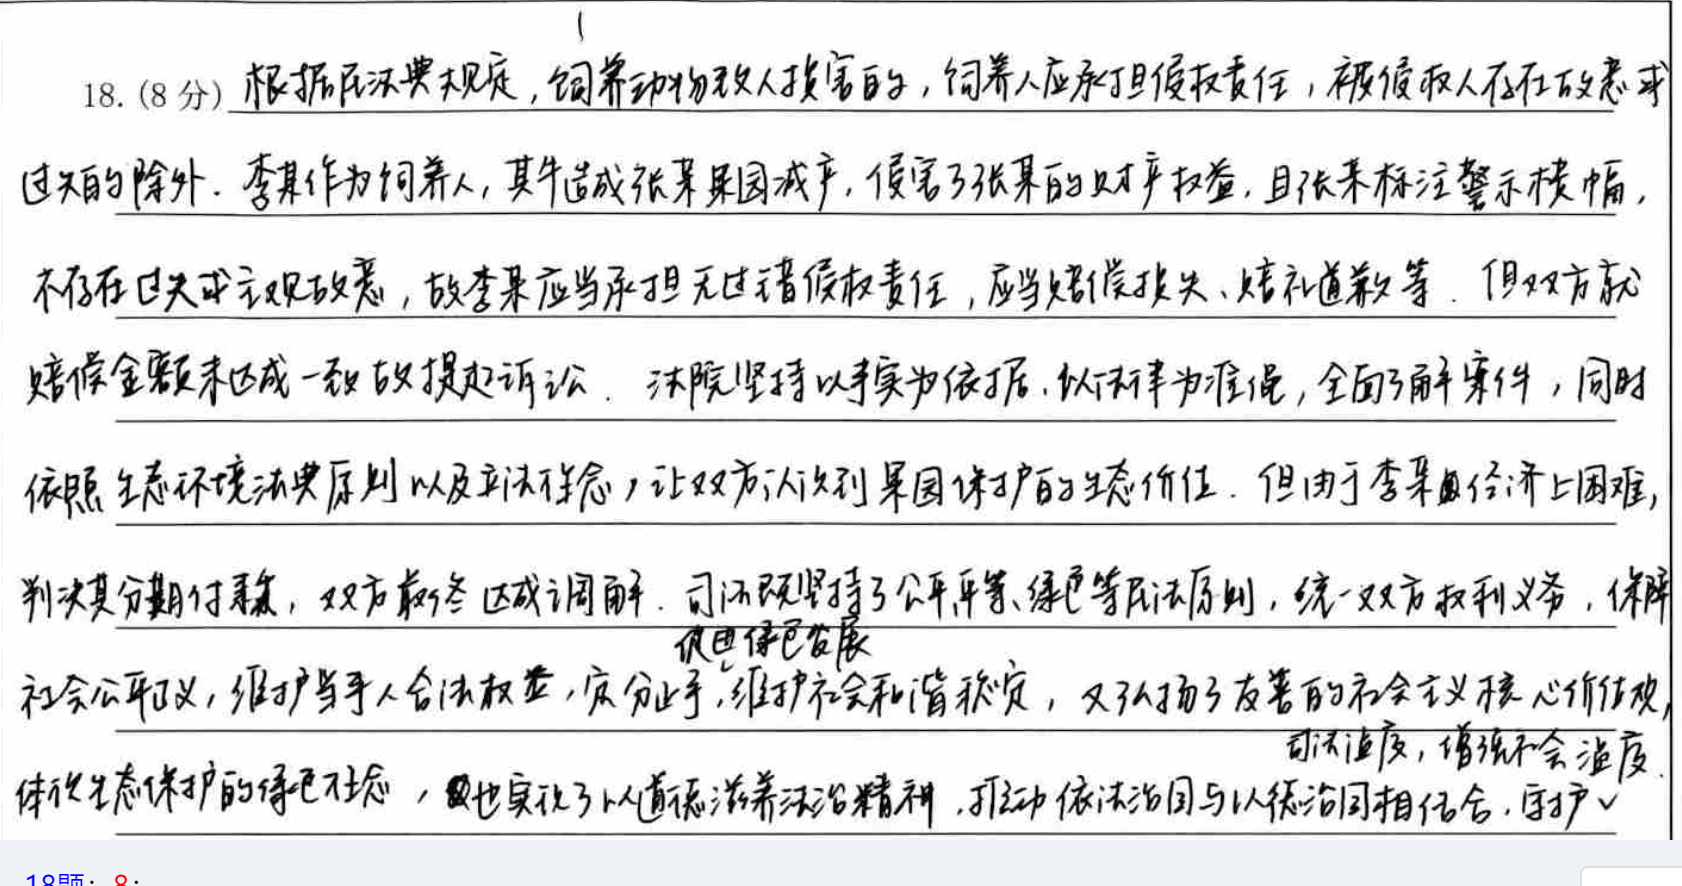 18. (8 分) 根据民法典规定，饲养动物致人损害的，饲养人应承担侵权责任，被侵权人存在故意或
过失的除外．李某作为饲养人，其牛造成张某果园减产，侵害了张某的财产权益，且张某标注警示横幅，
不存在过失或主观故意，故李某应当承担无过错侵权责任，应当赔偿损失、赔礼道歉等．但双方就
赔偿金额未达成一致故提起诉讼．法院坚持以事实为依据，以法律为准绳，全面了解案件，同时
依照生态环境法典原则以及立法理念，让双方认识到果园保护的生态价值．但由于李某经济上困难，
判决其分期付款，双方最终达成调解．司法既坚持了公平平等、绿色等民法原则，统一双方权利义务，保障
促进绿色发展
社会公平正义，维护当事人合法权益，定分止争，维护社会和谐稳定，又弘扬了友善的社会主义核心价值观，
司法温度，增强社会温度．
体现生态保护的绿色理念，也实现了以道德滋养法治精神，推动依法治国与以德治国相结合，守护
18题：8：